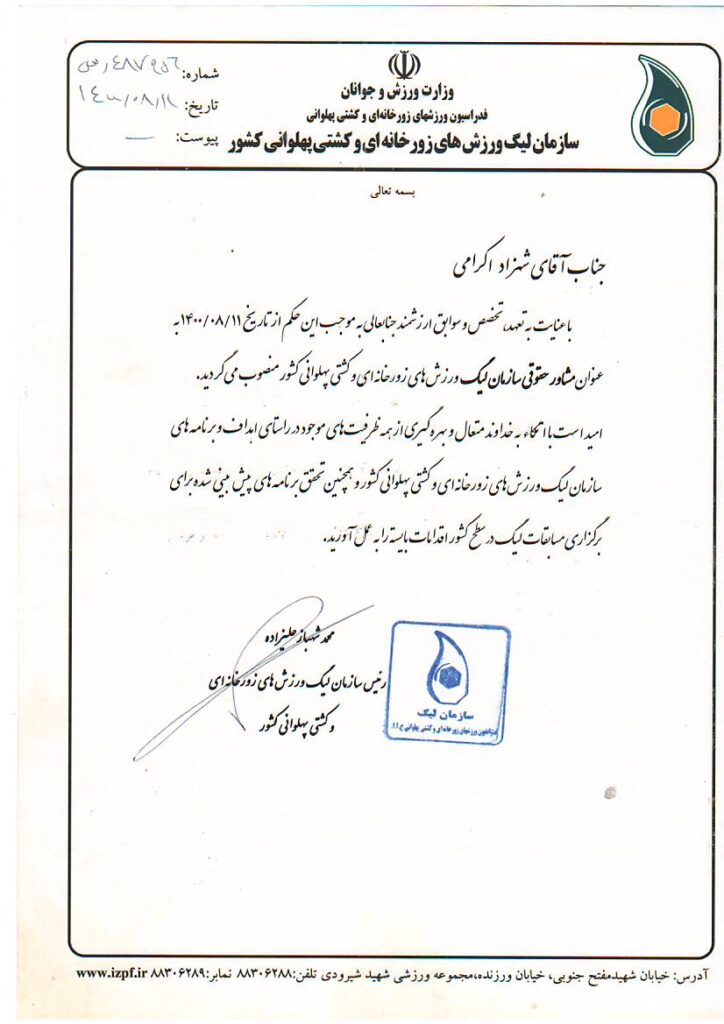 وزارت ورزش و جوانان
فدراسیون ورزشهای زورخانه‌ای و کشتی پهلوانی
سازمان لیگ ورزش های زورخانه ای و کشتی پهلوانی کشور
شماره:
تاریخ: ۱۴۰۰/۰۸/۱۱
پیوست: —
بسمه تعالی
جناب آقای شهزاد اکرامی
با عنایت به تعهد، تخصص و سوابق ارزشمند جنابعالی به موجب این حکم از تاریخ ۱۴۰۰/۰۸/۱۱ به
عنوان مشاور حقوقی سازمان لیگ ورزش های زورخانه ای و کشتی پهلوانی کشور منصوب می گردید.
امید است با اتکاء به خداوند متعال و بهره گیری از همه ظرفیت های موجود در راستای اهداف و برنامه های
سازمان لیگ ورزش های زورخانه ای و کشتی پهلوانی کشور و همچنین تحقق برنامه های پیش بینی شده برای
برگزاری مسابقات لیگ در سطح کشور اقدامات بایسته را به عمل آورید.
محمد شهباز علیزاده
رئیس سازمان لیگ ورزش های زورخانه ای
و کشتی پهلوانی کشور
سازمان لیگ
ورزشهای زورخانه‌ای و کشتی پهلوانی ج.ا.ا
آدرس: خیابان شهیدمفتح جنوبی، خیابان ورزنده،مجموعه ورزشی شهید شیرودی تلفن:۸۸۳۰۶۲۸۸ نمابر:۸۸۳۰۶۲۸۹ www.izpf.ir